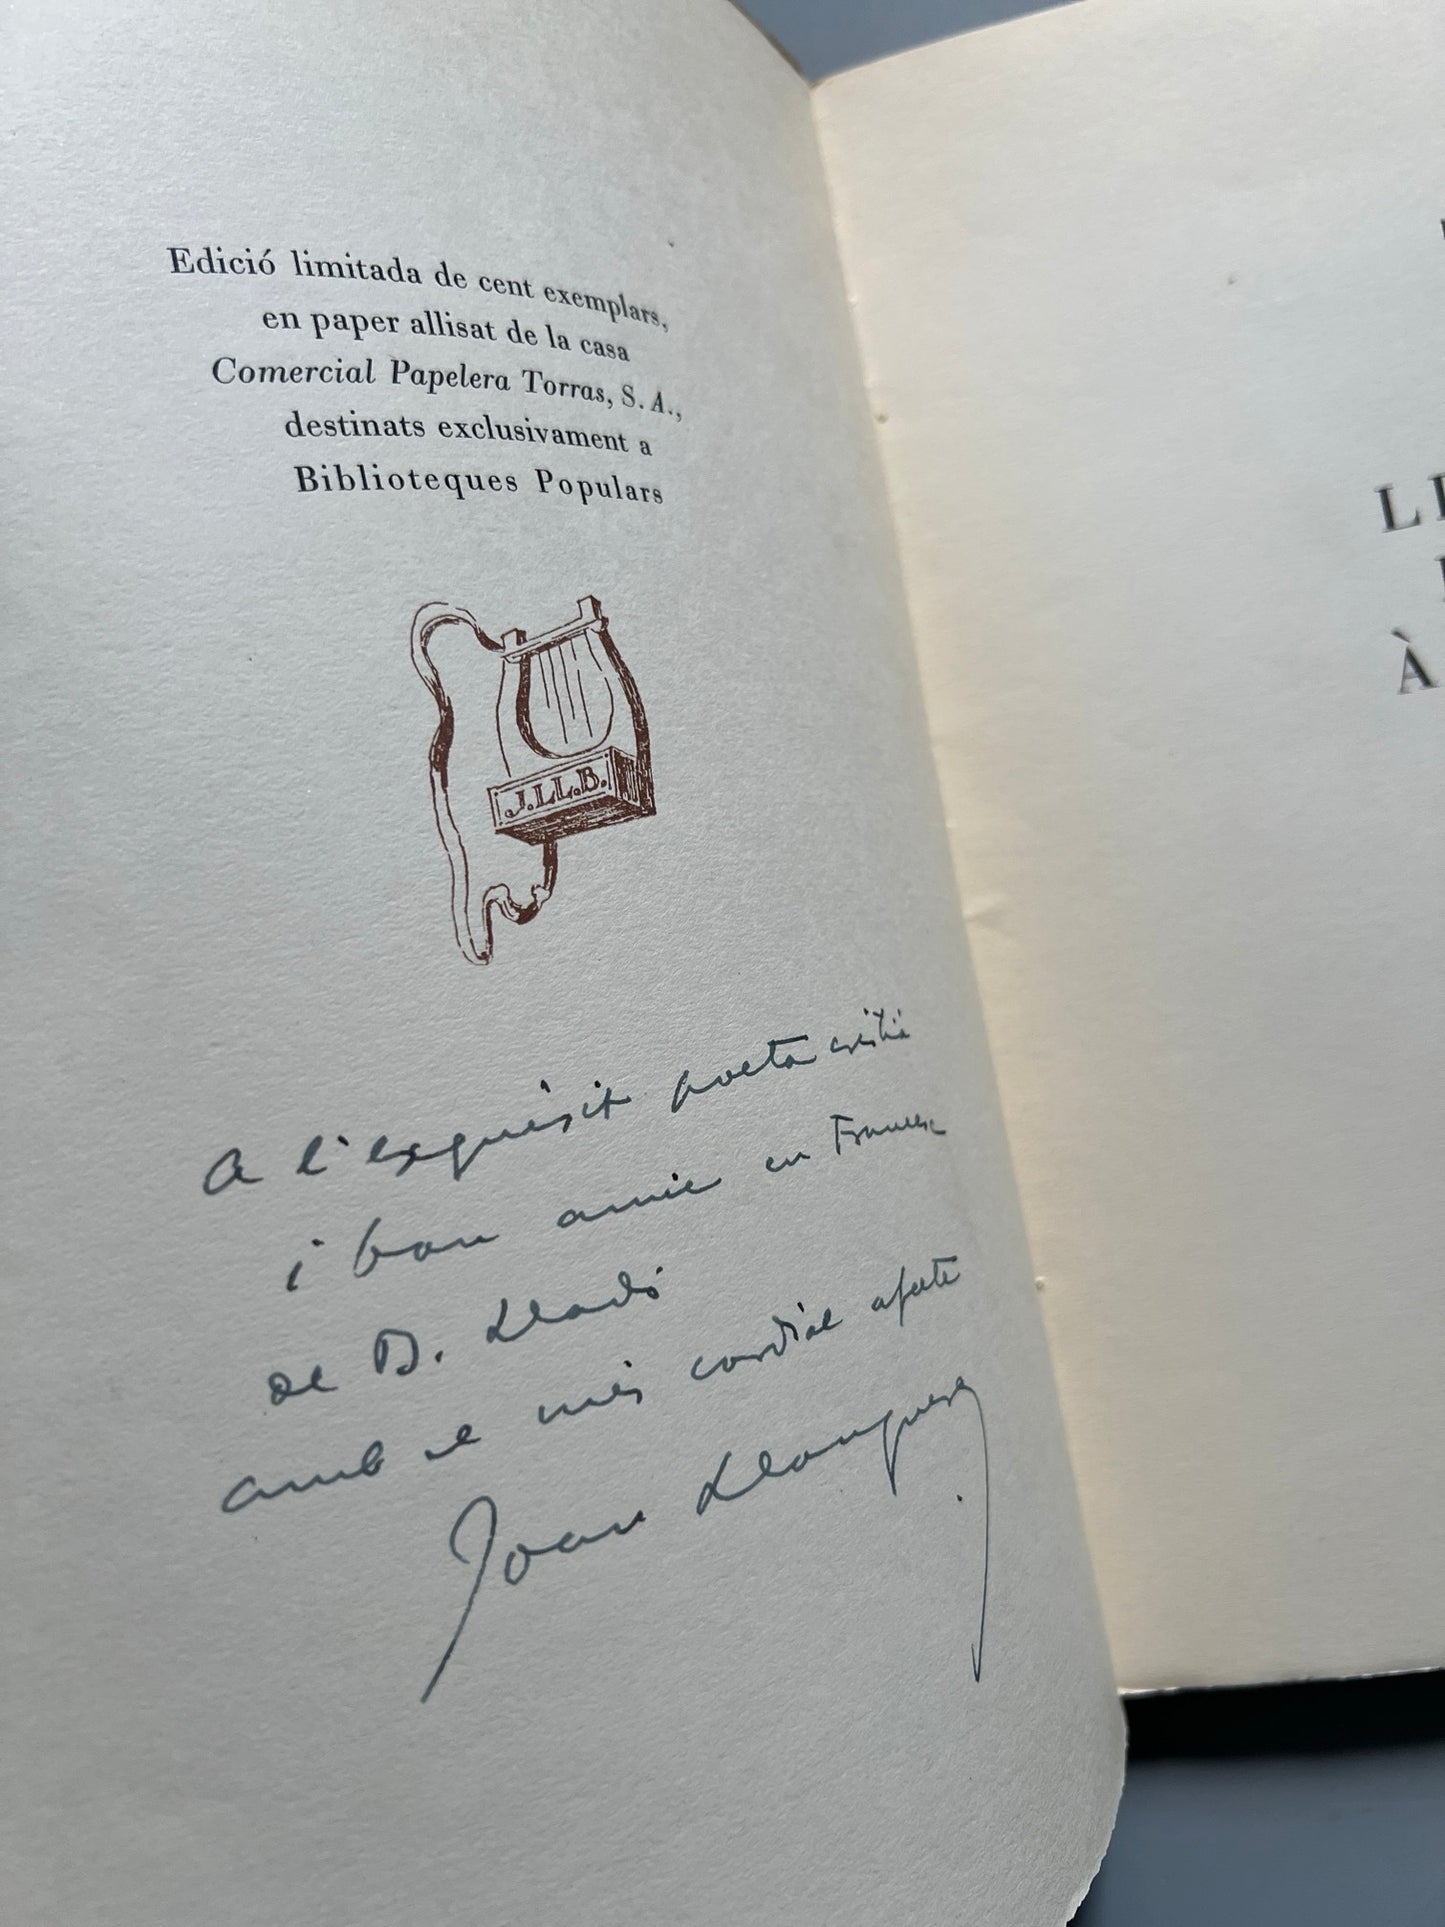 Edició limitada de cent exemplars,
en paper allisat de la casa
Comercial Papelera Torras, S. A.,
destinats exclusivament a
Biblioteques Populars
J.LL.B.
A l'exquisit poeta cristià
i bon amic en Francesc
de B. Lladó
amb el més cordial afecte
Joan Llongueres
LI
À